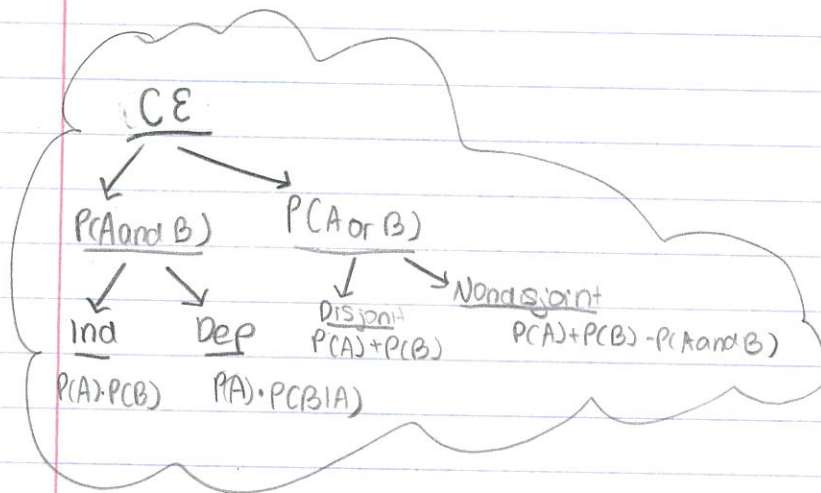 CE
P(A and B)
P(A or B)
Ind
Dep
Disjonit
Nondisjoint
P(A)·P(B)
P(A)·P(B|A)
P(A)+P(B)
P(A)+P(B)-P(A and B)